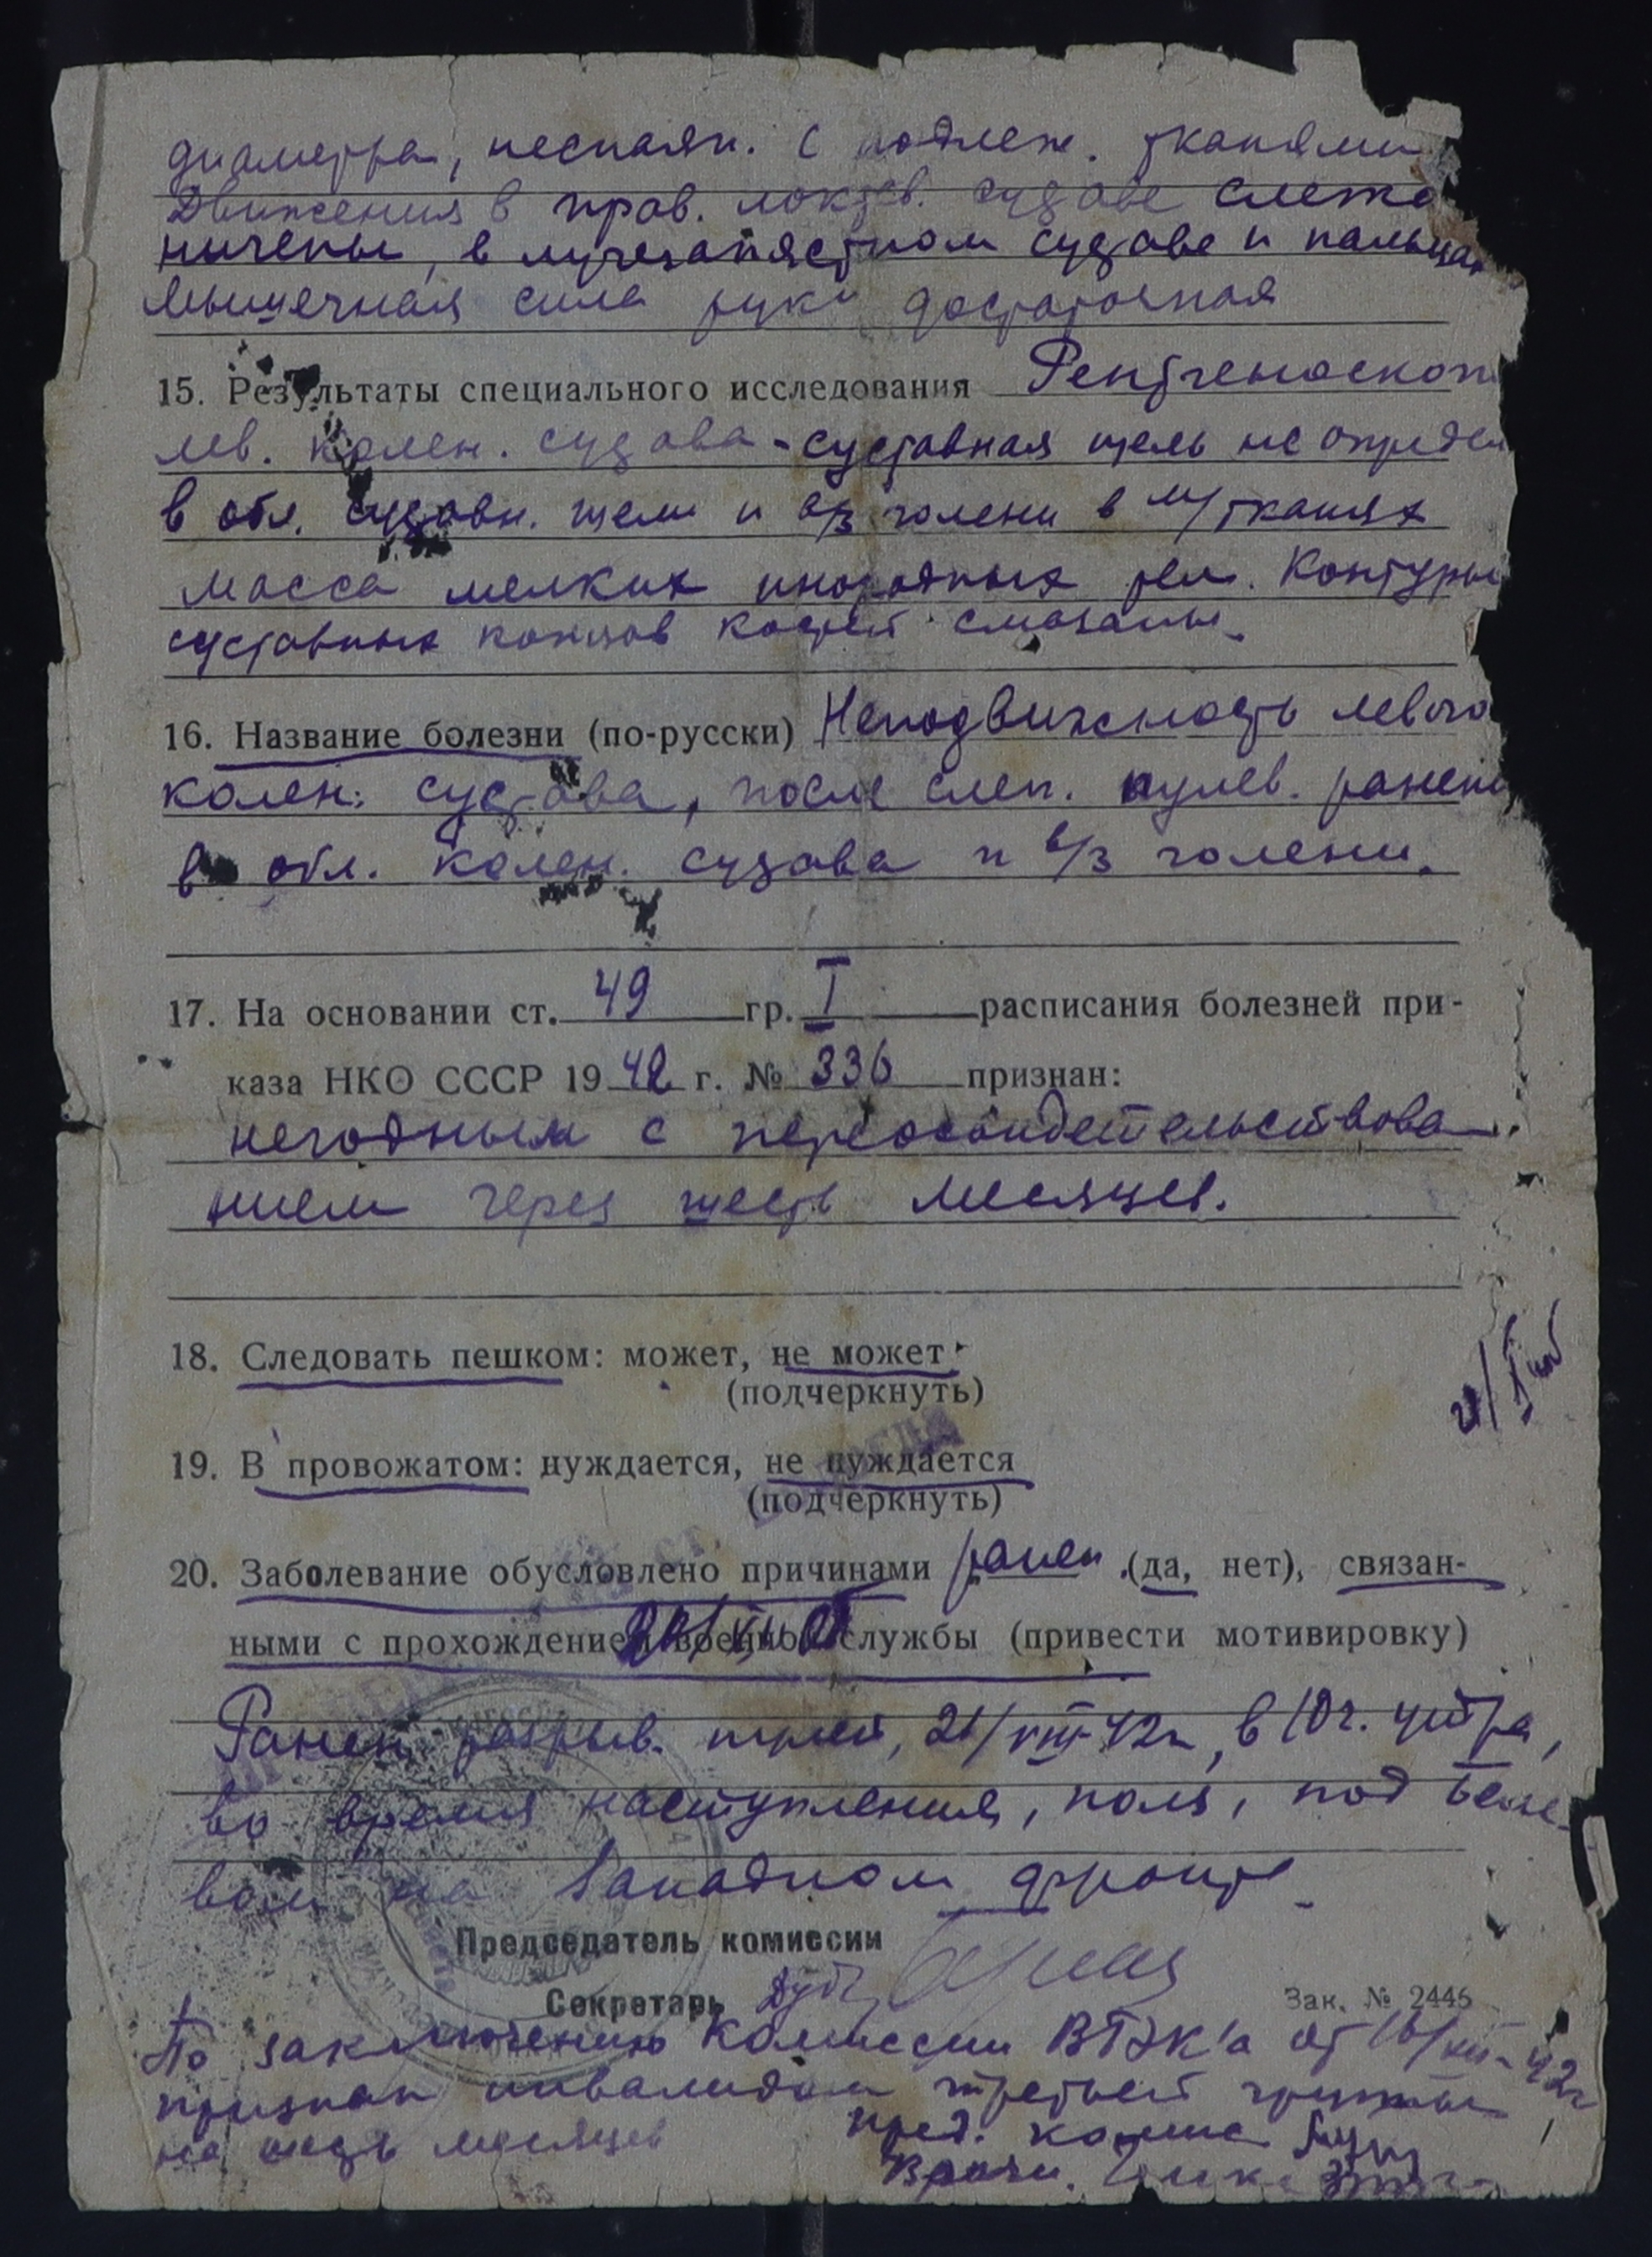 диаметра, неспаян. с подлеж. тканями
Движения в прав. локтев. суставе слегка
ничены, в лучезапястном суставе и пальцах
Мышечная сила руки достаточная
15. Результаты специального исследования Рентгеноскоп
лев. колен. сустава - суставная щель не определ
в обл. суставн. щели и в/3 голени в м/тканях
масса мелких инородных тел. Контуры
суставных концов костей смазаны.
16. Название болезни (по-русски) Неподвижность левого
колен. сустава, после слеп. пулев. ранени
в обл. колен. сустава и в/3 голени.
17. На основании ст. 49 гр. I расписания болезней при-
каза НКО СССР 1942 г. № 336 признан:
негодным с переосвидетельствова
нием через шесть месяцев.
18. Следовать пешком: может, не может
(подчеркнуть)
19. В провожатом: нуждается, не нуждается
(подчеркнуть)
20. Заболевание обусловлено причинами ранен (да, нет), связан-
ными с прохождением военной службы (привести мотивировку)
Ранен разрыв. пулей, 21/VIII-42г, в 10ч. утра,
во время наступления, поля, под Беле-
вом на Западном фронте
Председатель комиссии
Секретарь
Зак. № 2446
По заключению комиссии ВТЭК'а от 16/XII-42г
признан инвалидом третьей группы
на шесть месяцев
Пред. комис
Врачи.